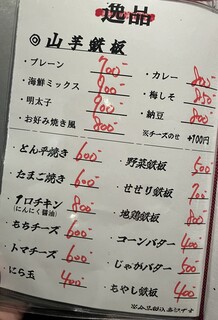 逸品
◎山芋鉄板
・プレーン 700-
・海鮮ミックス 900-
・明太子 900-
・お好み焼き風 800-
・カレー 800-
・梅しそ 850-
・納豆 800-
※チーズのせ +100円
・とん平焼き 600-
・たまご焼き 600-
・1口チキン 800-
(にんにく醤油)
・もちチーズ 600-
・トマチーズ 600-
・にら玉 400-
・野菜鉄板 500-
・せせり鉄板 700-
・地鶏鉄板 800-
・コーンバター 400-
・じゃがバター 500-
・もやし鉄板 400-